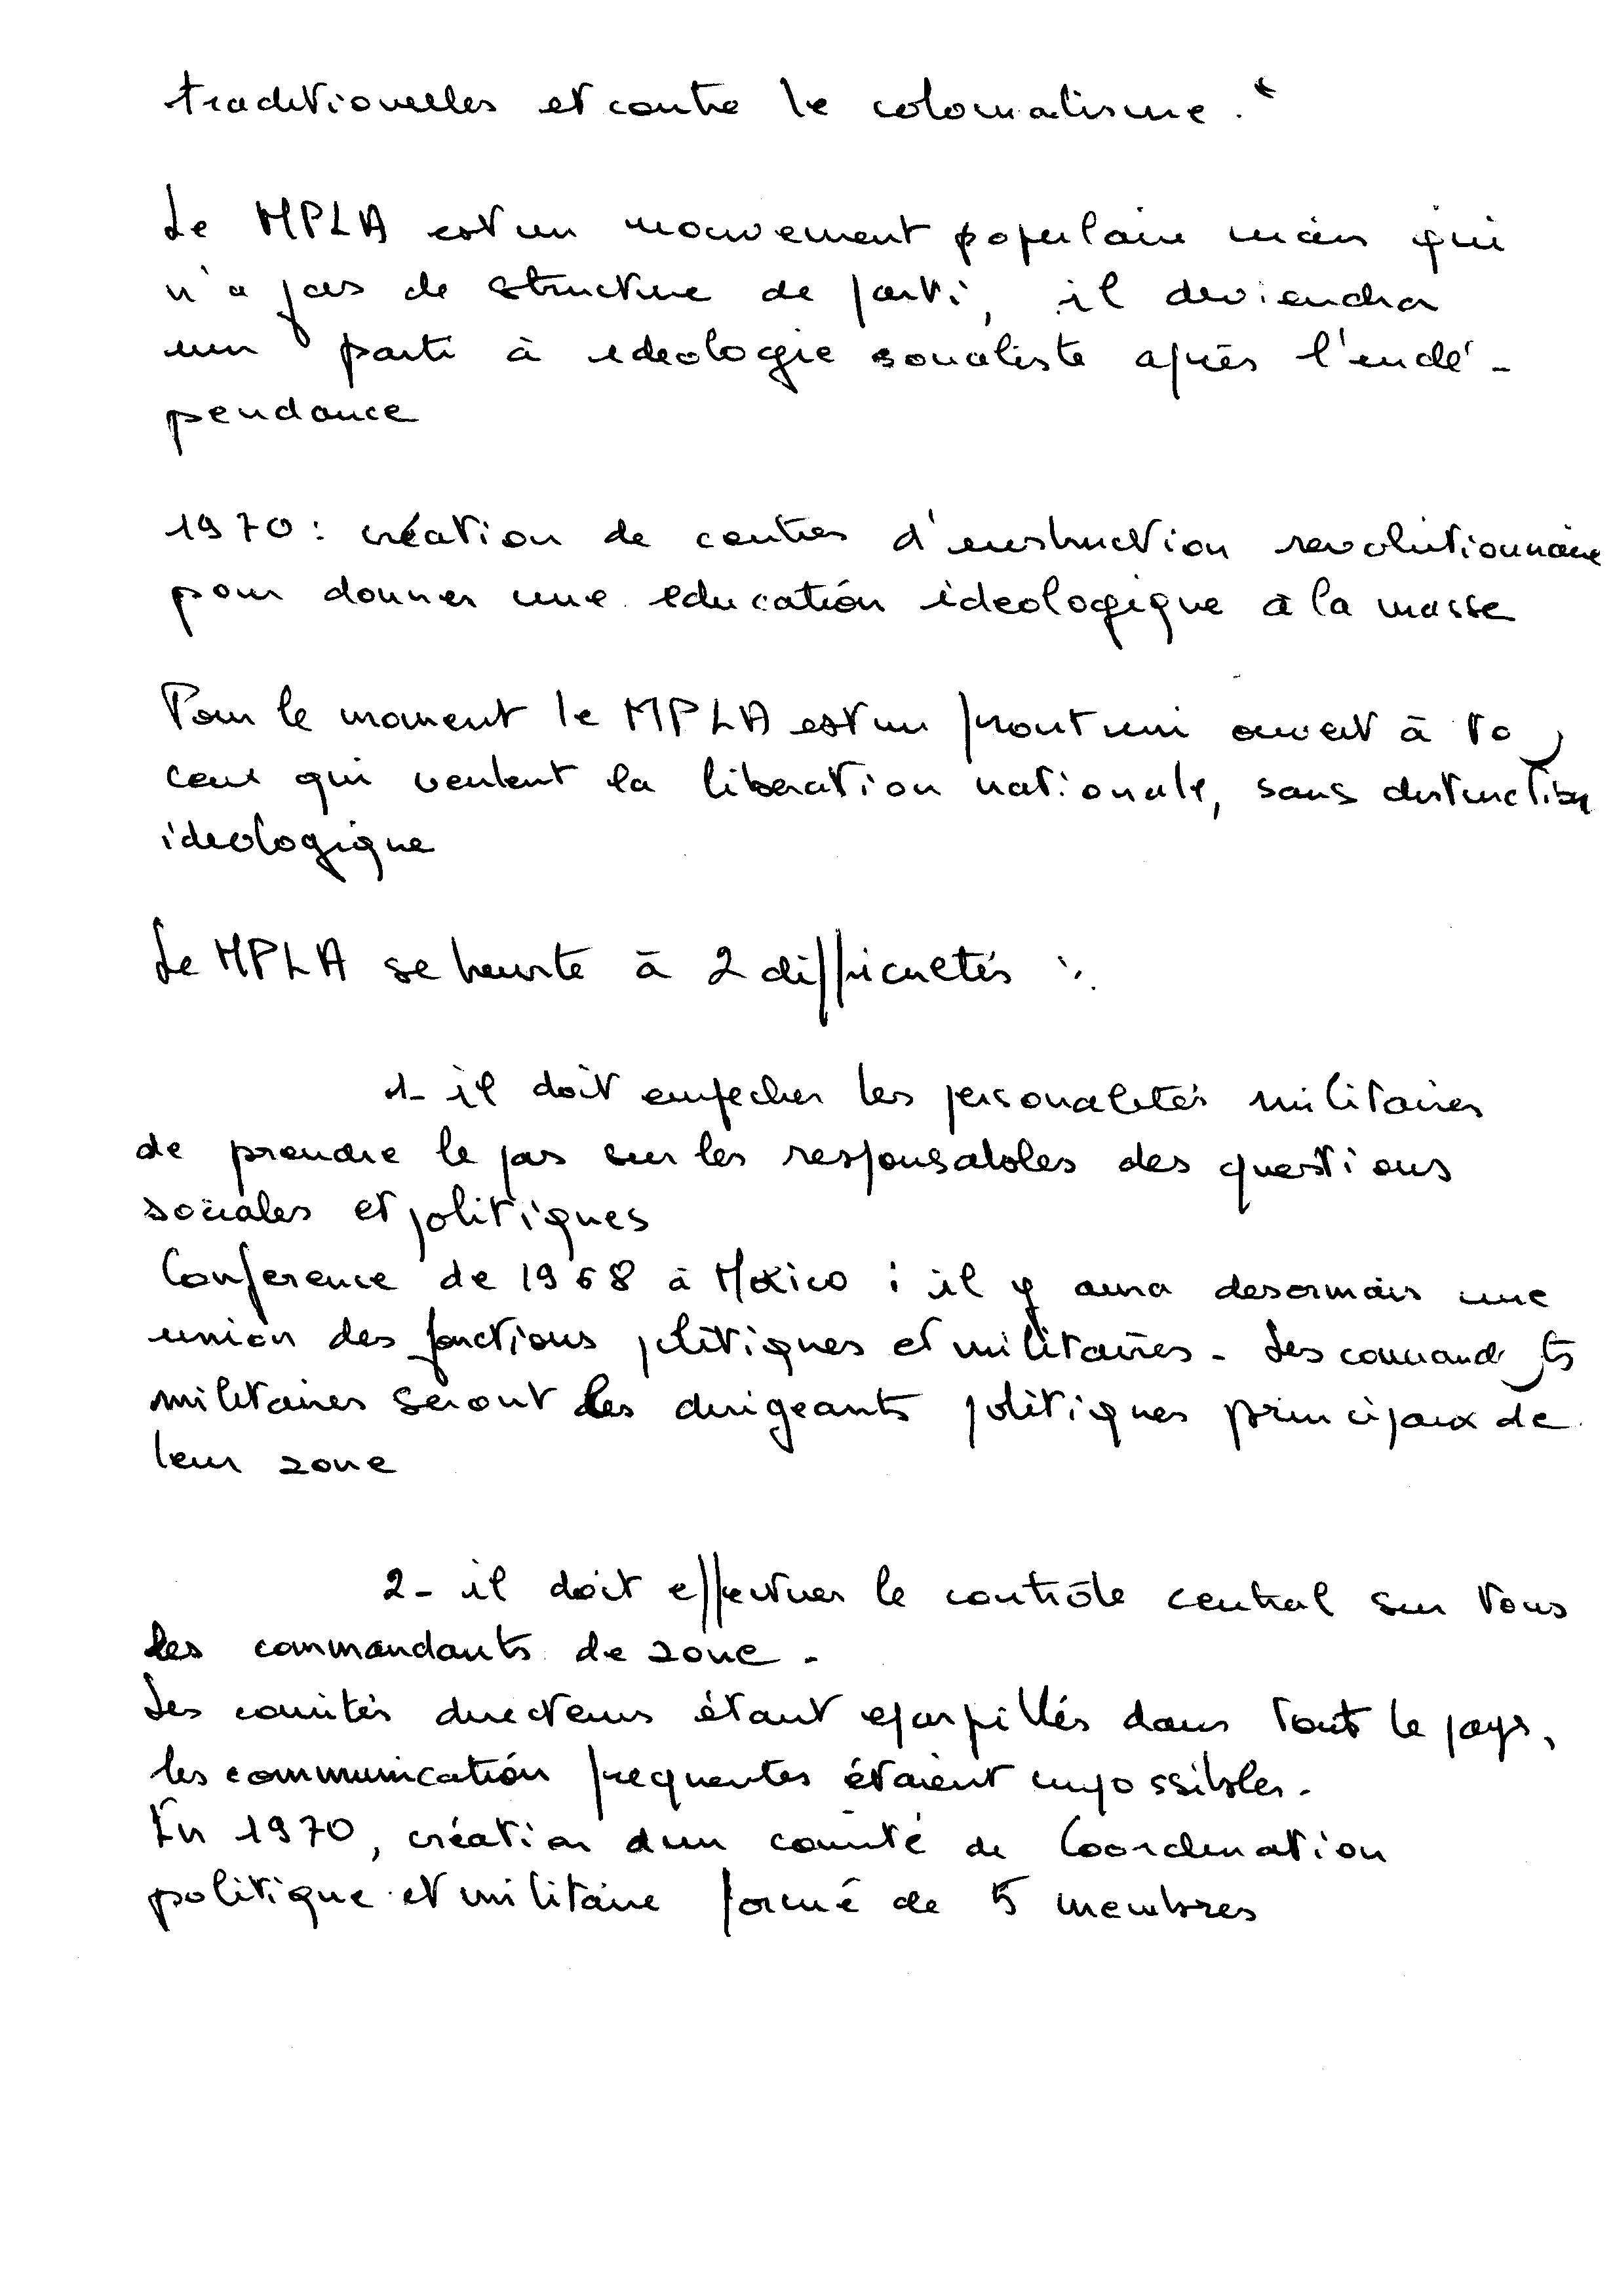 traditionnelles et contre le colonialisme."
Le MPLA est un mouvement populaire mais qui
n'a pas de structure de parti, il deviendra
un parti à ideologie socialiste après l'indé-
pendance
1970 : création de centres d'instruction revolutionnaire
pour donner une education ideologique à la masse
Pour le moment le MPLA est un front uni ouvert à to
ceux qui veulent la liberation nationale, sans distinction
ideologique
Le MPLA se heurte à 2 difficultés :
1- il doit empecher les personalités militaires
de prendre le pas sur les responsables des questions
sociales et politiques
Conference de 1968 à Mexico : il y aura desormais une
union des fonctions politiques et militaires - Les command ts
militaires seront les dirigeants politiques principaux de
leur zone
2- il doit effectuer le contrôle central sur tous
les commandants de zone -
Les comités directeurs étant eparpillés dans tout le pays,
les communication frequentes étaient impossibles -
En 1970, création d'un comité de Coordination
politique et militaire formé de 5 membres